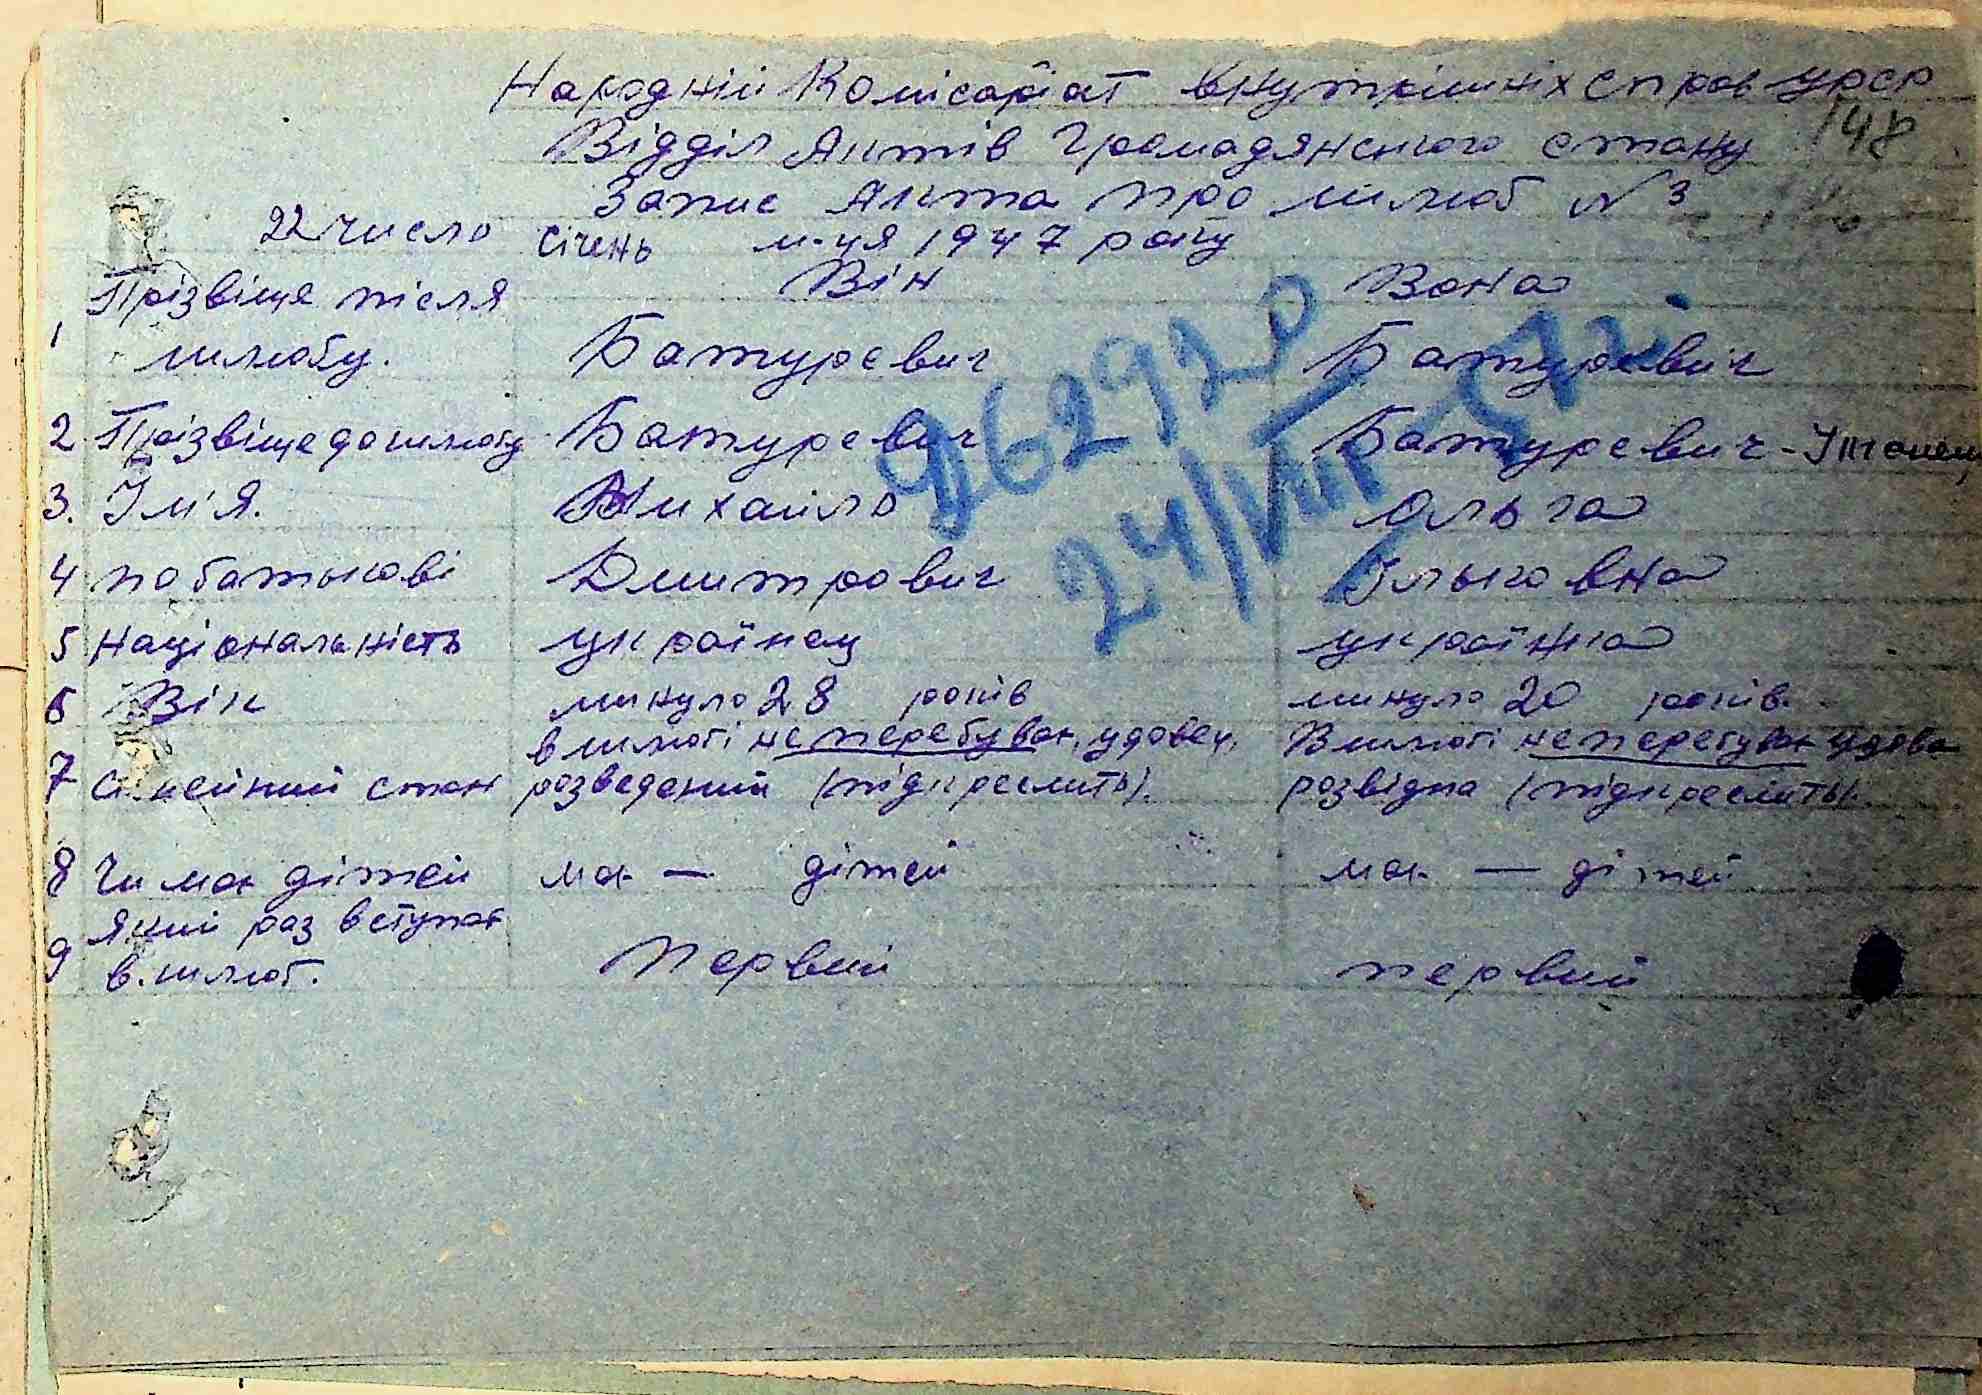 Народній Комісаріат внутрішніх справ УРСР
148
Відділ Актів Громадянського стану
Запис Акта про шлюб № 3
22 число січень м-ця 1947 року
Він Вона
1 Прізвіще після шлюбу. Батуревич Батуревич
2 Прізвіще до шлюбу Батуревич Батуревич-
3. Ім'я. Михайло Ольга
4 по батькові Дмитрович Ільковна
5 Національність українец українка
6 Вік минуло 28 років минуло 20 років.
7 Сімейний стан в шлюбі не перебував, удовец, В шлюбі не перебував удова
розведений (підкреслить). розвідна (підкреслить).
8 Чи має дітей має — дітей має — дітей
9 Який раз вступає в шлюб. первий первий
24/VIII